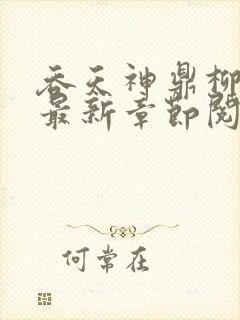 吞天神鼎柳
最新章节阅
何常在